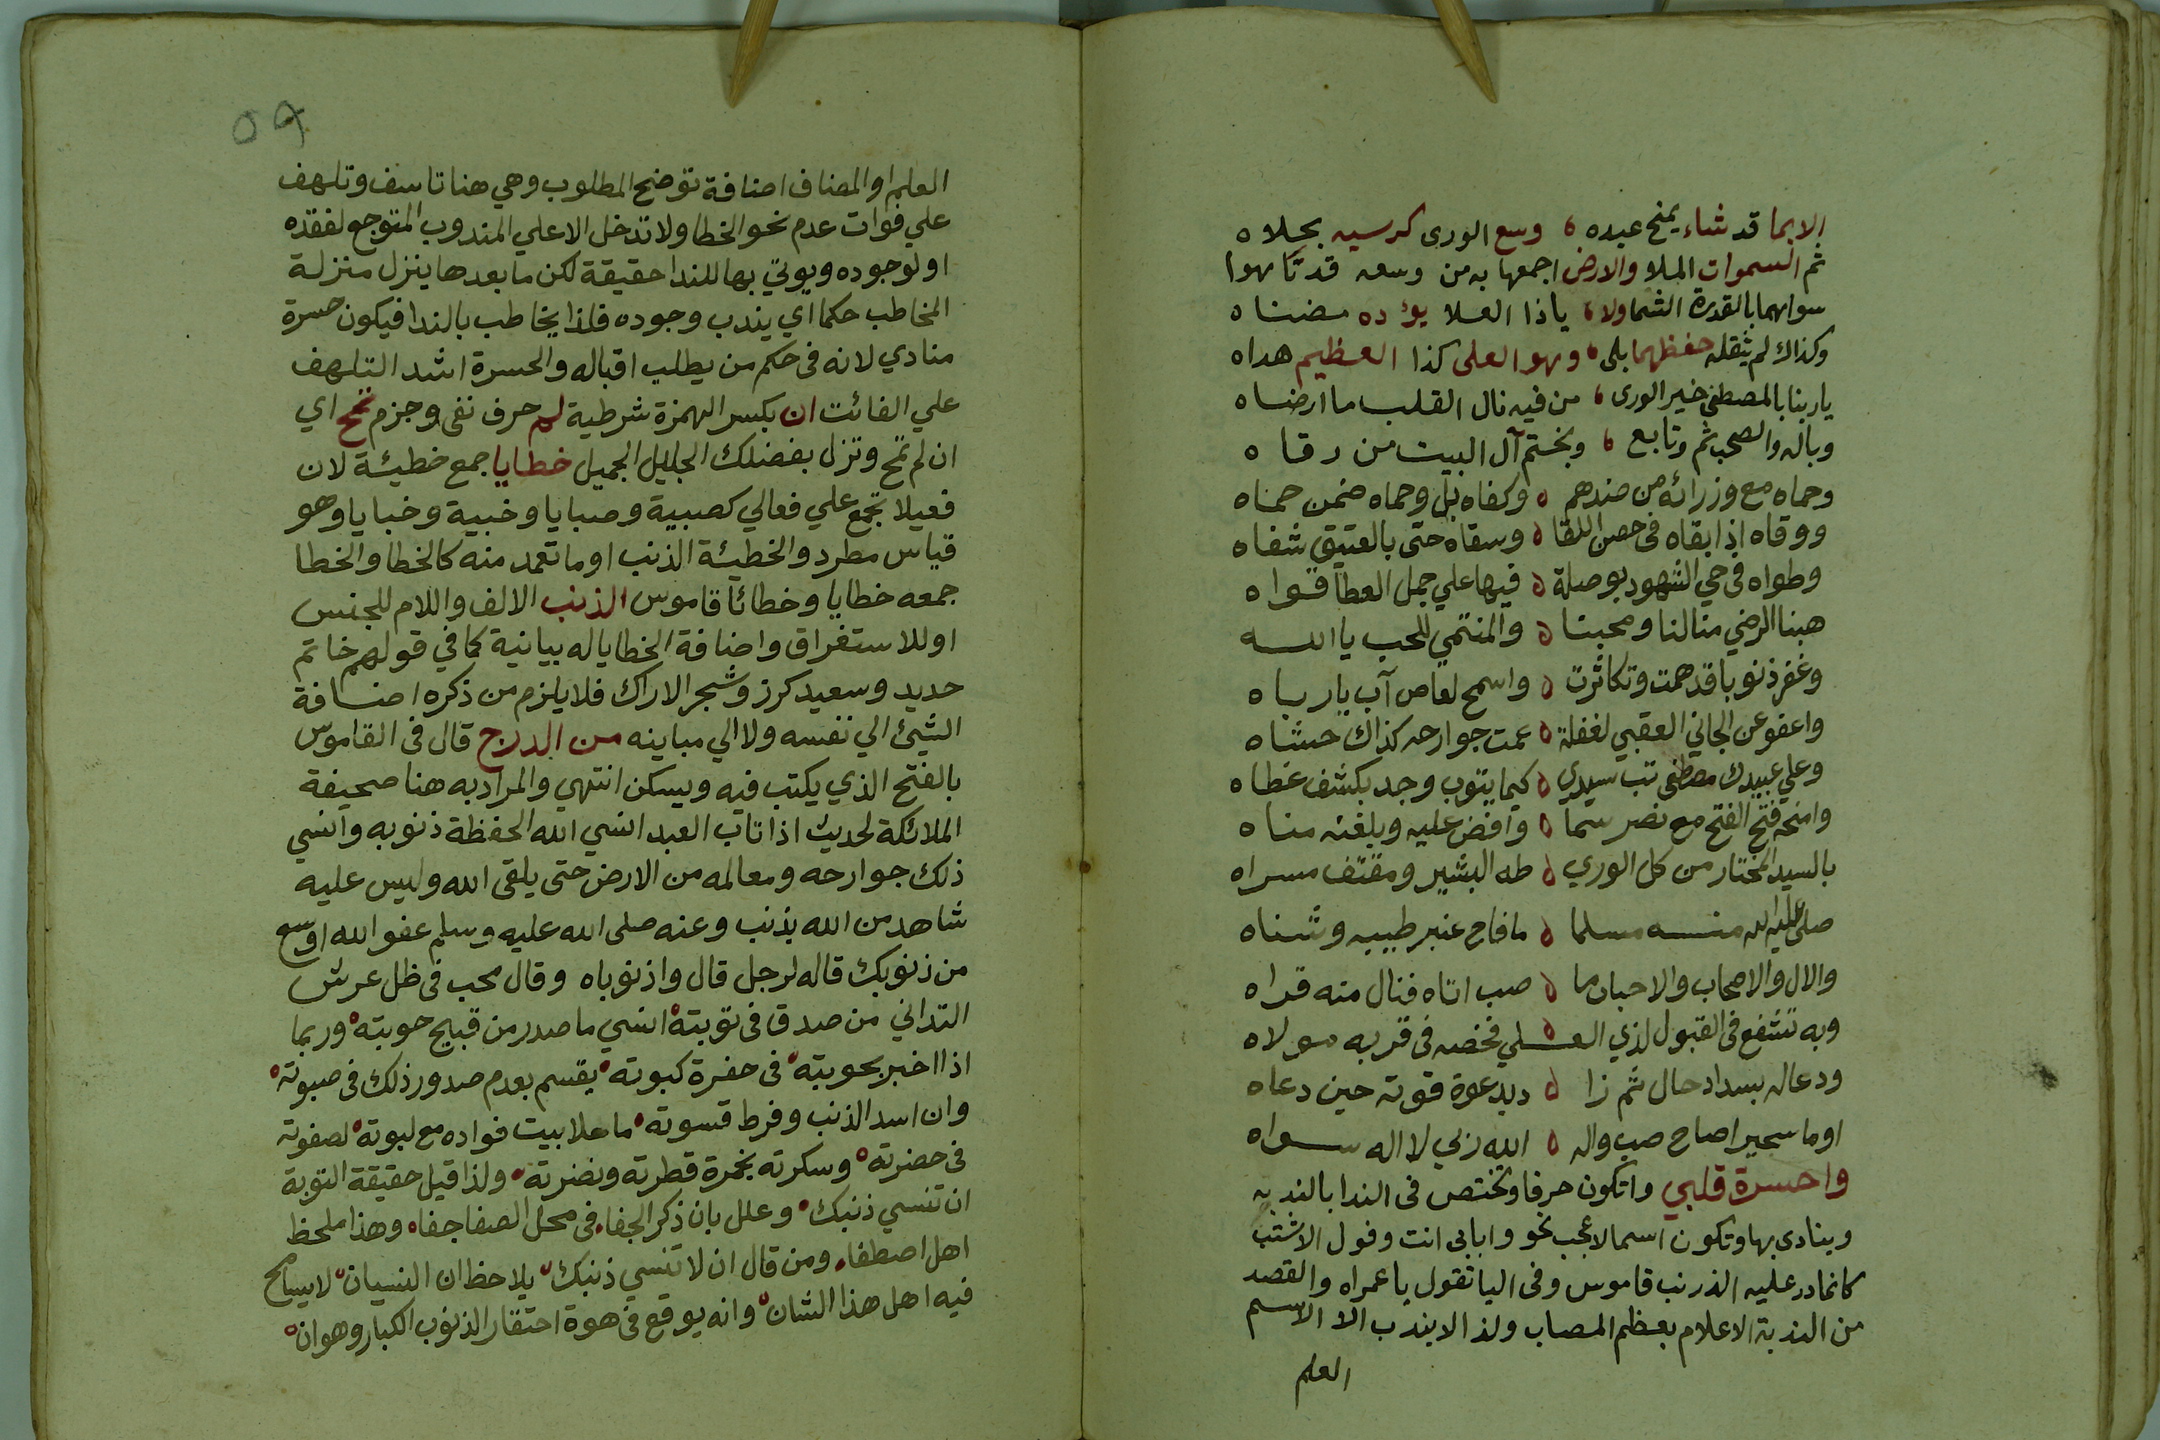 الابما قد شاء يمنح عبده ه وسع الورى كرسيه بجلاه
ثم السموات الملا والارض اجمعها به من وسعه قد تاهوا
سواهما بالقدرة الشما ولا ه ياذا العلا يؤده مضناه
وكذاك لم يثقله حفظهما بلى ه وهو العلى كذا العظيم هداه
يا ربنا بالمصطفى خير الورى ه من فيه نال القلب ما ارضاه
وباله والصحب ثم وتابع ه وبختم آل البيت من رقاه
وحماه مع وزرائه من ضدهم ه وكفاه بل وحماه ضمن حماه
ووقاه اذ ابقاه فى حصن اللقا ه وسقاه حتى بالعتيق شفاه
وطواه فى حي الشهود بوصلة ه فيها علي جمل العطا قواه
هبنا الرضي منا لنا ومحبنا ه والمنتمي للحب يا الله
وغفر ذنوبا قد همت وتكاثرت ه واسمح لعاص آب يا رباه
واعفو عن الجاني العقبي لغفلة ه عمت جوارحه كذاك حشاه
وعلي عبيدك مصطفى تب سيدي ه كيما يتوب وجد بكشف غطاه
وامنحه فتح الفتح مع نصر سما ه وافض عليه وبلغنه مناه
بالسيد المختار من كل الوري ه طه البشير ومقتف مسراه
صلى عليه الله منه مسلما ه ما فاح عنبر طيبه وشناه
والال والاصحاب والاحباب ما ه صب اتاه فنال منه قراه
وبه تشفع فى القبول لذي العلي ه فخصه فى قربه مولاه
ودعاله بسداد حال ثم زا ه د بدعوة قوته حين دعاه
اوما سحير اصاح صب واله ه الله ربي لا اله سواه
واحسرة قلبي وا تكون حرفا وتختص فى الندا بالندبه
وينادى بها وتكون اسما لاعجب نحو وا بابى انت وفوك الاشنب
كانما ذر عليه الذرنب قاموس وفى اليا تقول يا عمراه والقصد
من الندبة الاعلام بعظم المصاب ولذا لا يندب الا الاسم
العلم
09
العلم او المضاف اضافة توضح المطلوب وهي هنا تاسف وتلهف
علي فوات عدم نحو الخطا ولا تدخل الا علي المندوب المتوجع لفقده
او لوجوده ويوتي بها للندا حقيقة لكن ما بعدها ينزل منزلة
المخاطب حكما اي يندب وجوده فلذا يخاطب بالندا فيكون حسرة
منادي لانه فى حكم من يطلب اقباله والحسرة اشد التلهف
علي الفائت ان بكسر الهمزة شرطية لم حرف نفى وجزم تمح اي
ان لم تمح وتزل بفضلك الجليل الجميل خطايا جمع خطيئة لان
فعيلا تجمع علي فعالي كصبية وصبايا وخبية وخبايا وهو
قياس مطرد والخطيئة الذنب او ما تعمد منه كالخطا والخطا
جمعه خطايا وخطائا قاموس الذنب الالف واللام للجنس
او للاستغراق واضافة الخطايا له بيانية كما في قولهم خاتم
حديد وسعيد كرز وشجر الاراك فلا يلزم من ذكره اضافة
الشيئ الي نفسه ولا الي مباينه من الدرج قال فى القاموس
بالفتح الذي يكتب فيه ويسكن انتهي والمراد به هنا صحيفة
الملائكة لحديث اذا تاب العبد انسي الله الحفظة ذنوبه وانسي
ذلك جوارحه ومعالمه من الارض حتى يلقى الله وليس عليه
شاهد من الله بذنب وعنه صلى الله عليه وسلم عفو الله اوسع
من ذنوبك قاله لرجل قال واذنوباه وقال محب فى ظل عرش
التداني من صدق فى توبته انسي ما صدر من قبيح حوبته وربما
اذا اخبر بحوبته فى حفرة كبوته يقسم بعدم صدور ذلك فى صبوته
وان اسد الذنب وفرط قسوته ما علا بيت فواده مع لبوته لصفوته
فى حضرته وسكرته بخمرة قطرته ونضرته ولذا قيل حقيقة التوبة
ان تنسي ذنبك وعلل بان ذكر الجفاء فى محل الصفا جفاء وهذا ملحظ
اهل اصطفاء ومن قال ان لا تنسي ذنبك يلاحظ ان النسيان لا يسامح
فيه اهل هذا الشان وانه يوقع فى هوة احتقار الذنوب الكبار وهوان